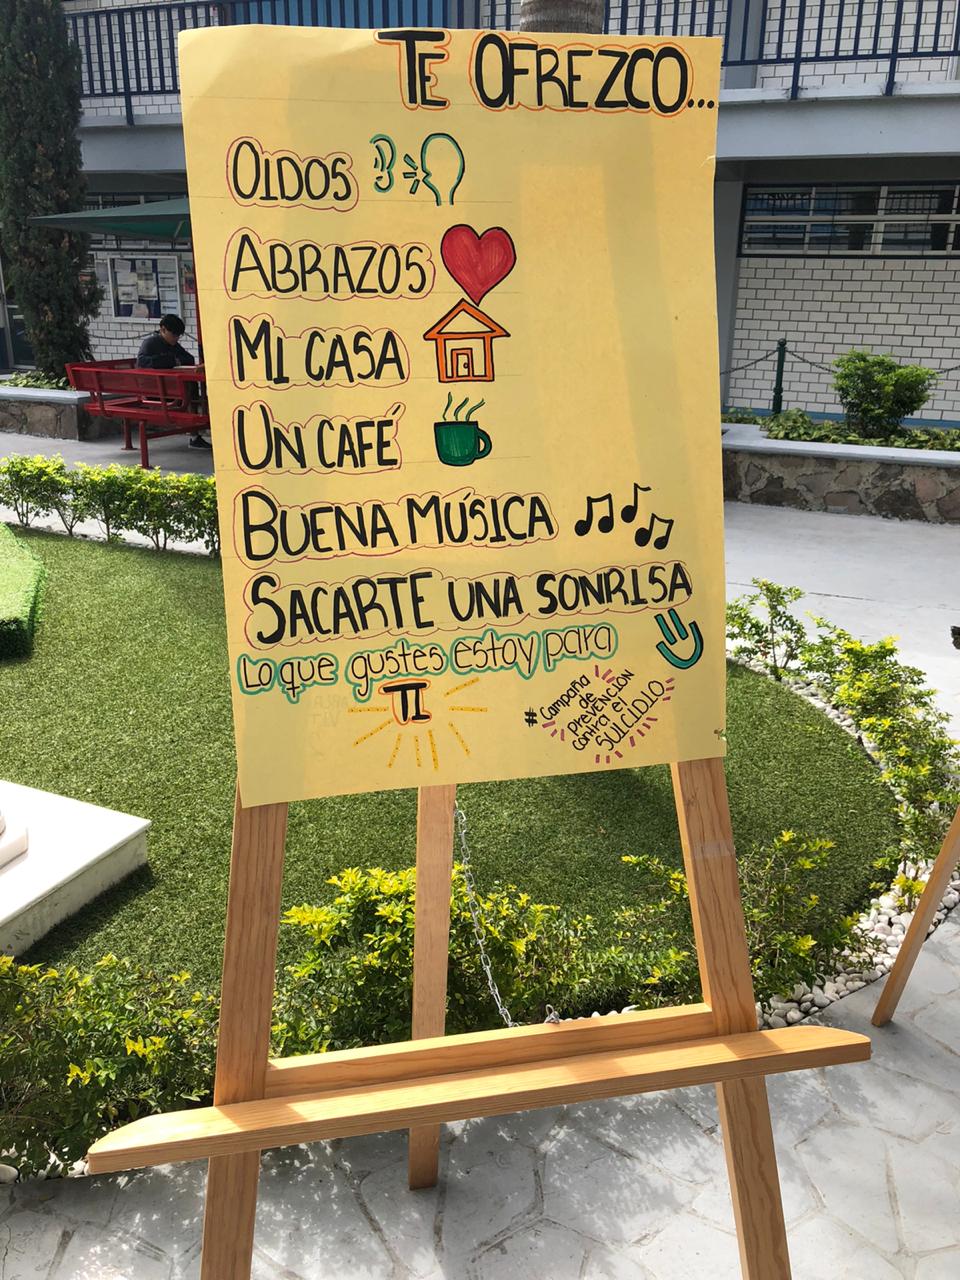 TE OFREZCO...
OIDOS
ABRAZOS
MI CASA
UN CAFÉ
BUENA MÚSICA
SACARTE UNA SONRISA
Lo que gustes estoy para
TI
# Campaña
de
PREVENCIÓN
contra el
SUICIDIO